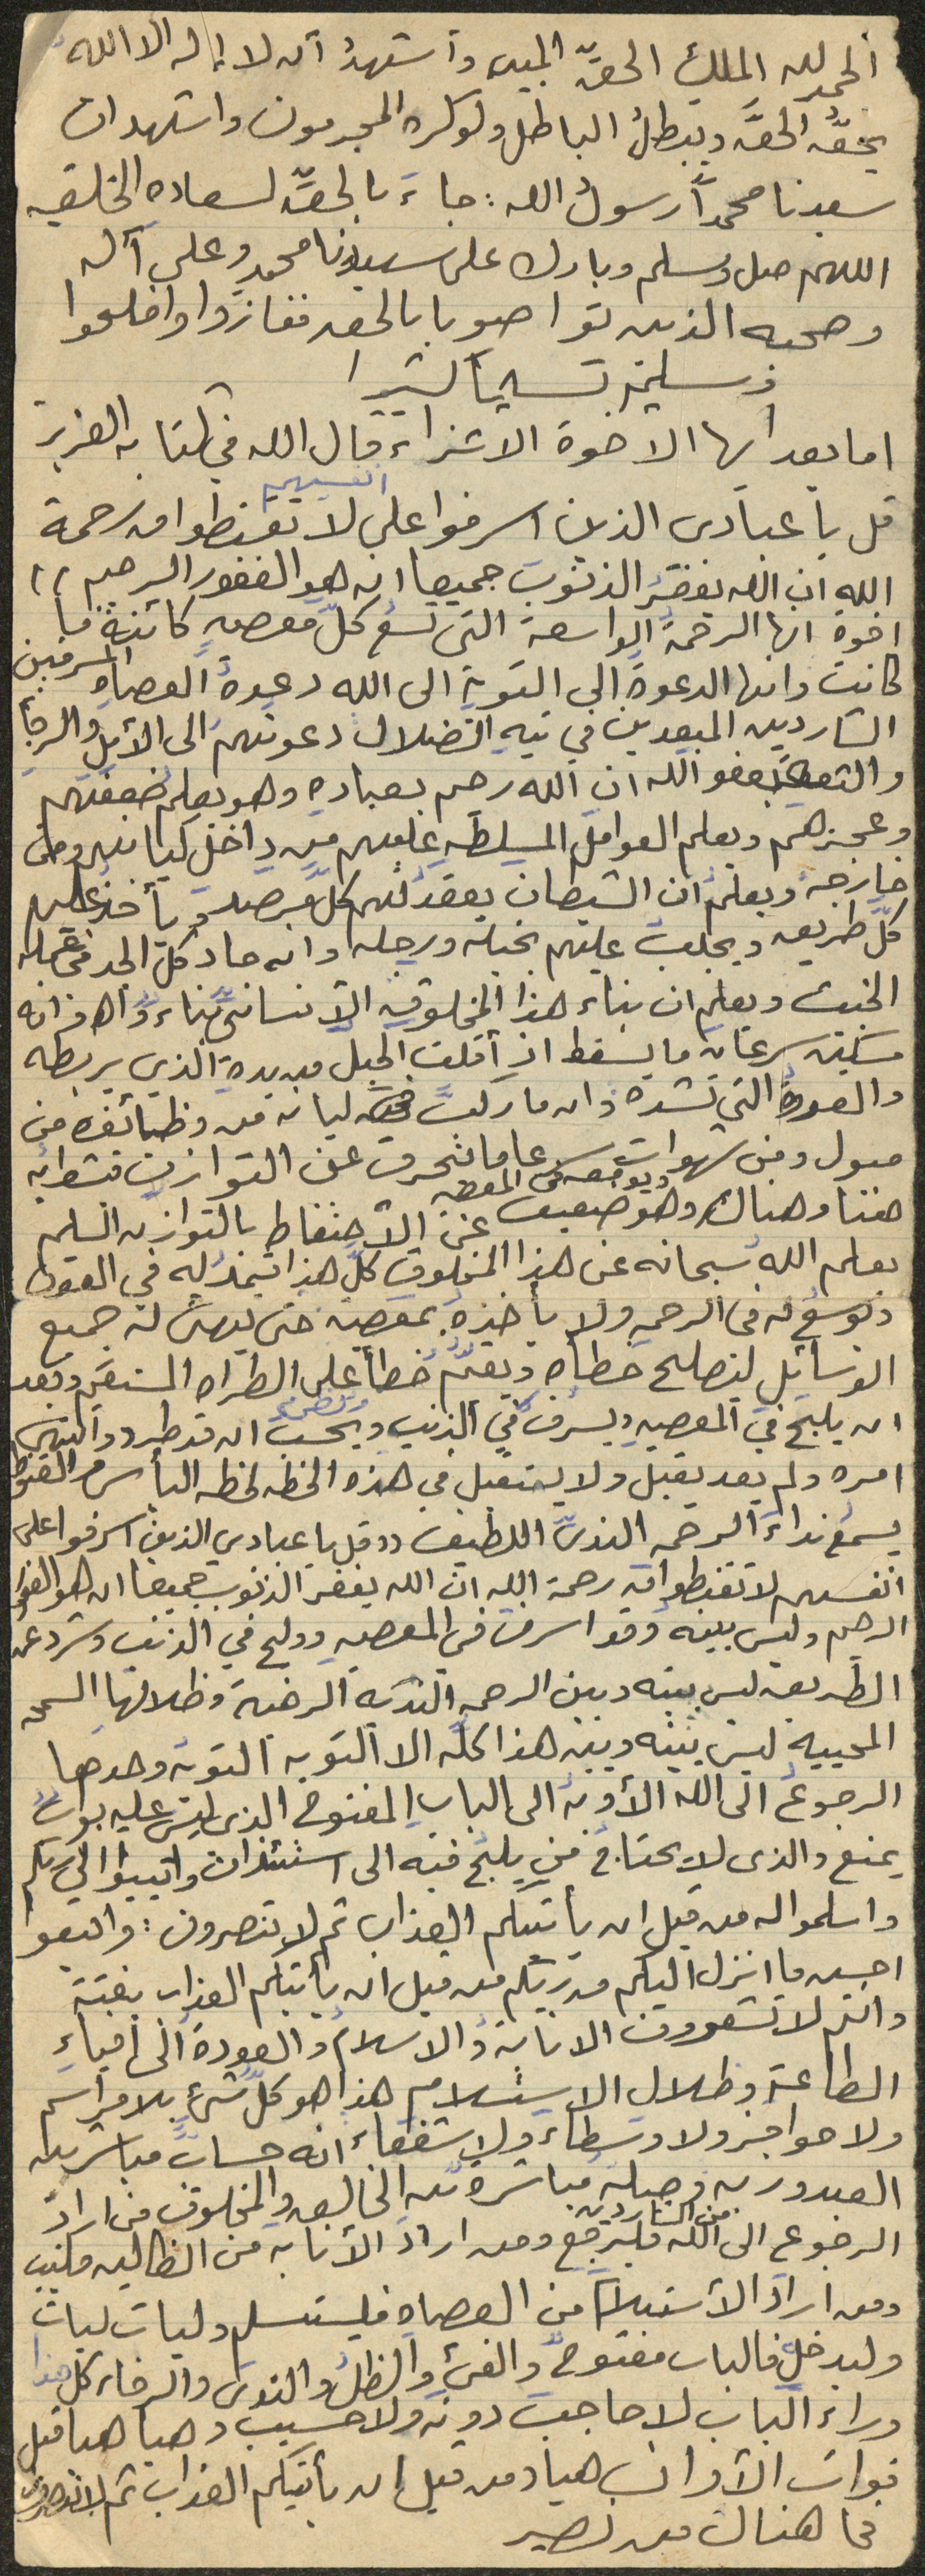 الحمد لله الملك الحقّ المبين وأشهدُ أن لا إله إلا اللهُ
يحقُّ الحقَّ ويبطلُ الباطل ولو كره المجرمون واشهد ان
سيدنا محمداً رسولُ الله : جاءَ بالحقّ لسعاده الخلقيه
اللهم صل وسلم وبارك على سيدنا محمد وعلى آله
وصحبه الذين تواصوا بالحق ففازوا وافلحوا
وسلم تسليماً كثيرا
اما بعد ايها الاخوة الاعزاء قال الله في كتابه العزيز
قل يا عبادى الذين اسرفوا على انفسهم لا تقنطوا من رحمة
الله ان الله يغفرُ الذنوبَ جميعا انه هو الغفور الرحيم ،،
اخوة انها الرحمةُ الواسعة التى تسعُ كلّ معصيهٍ كائنة ما
كانت وانها الدعوة الى التوبة الى الله دعوةُ العصاهِ المسرفين
الشاردين المبعدين في تيهِ الضلال دعوتهم الى الأملِ والرجأ
والثقه بعفو الله ان الله رحيم بعباده وهو يعلم ضعفهم
وعجزهم ويعلم العوامل المسلطه عليهم من داخل كيانهم ومن
خارجه ويعلم ان الشيطان يقعد لهم كلّ مرصد ويأخذ عليهم
كلّ طريق ويجلبُ عليهم بخيله ورجله وانه جاد كلّ الجد في عمله
الخبيث ويعلم ان بناء هذا المخلوق الانسانى بناء واه وانه
مسكين سرعان ما يسقط اذ أفلت الحبل من يده الذي يربطه
والعروة التي تشده وان ما ركب في كيانه من وظائفه ومن
ميول ومن شهوات سرعان ما تنحرف عن التوازن فتشط به
هنا وهناك ويوقعه في المعصيه وهو ضعيف عن الاحتفاظ بالتوازن السليم
يعلم الله سبحانه عن هذا المخلوق كلّ هذا فيمد له في العون
ويوسع له في الرحمه ولا يأخذهُ بمعصيته حتى يهيئ له جميع
الوسائل ليصلح خطأه ويقيم خطاه على الصراط المستقيم وبعد
ان يلج في المعصيه ويسرف في الذنب ويحسب انه قد طرد وانتهى
امره ولم يعد يقبل ولا يستقبل في هذه الحظه لحظه اليأس والقنوط
يسمع نداءَ الرحمه الندىّ اللطيف ,, قل يا عبادي الذين اسرفوا على
انفسهم لا تقنطوا من رحمة الله ان الله يغفر الذنوب جميعا انه هو الغفور
الرحيم وليس بينه وقد اسرف في المعصيه وولج في الذنب وشرد عن
الطريق ليس بينه وبين الرحمه النديه الرخية وظلالها السمحه
المحييه ليس بينه وبين هذا كله الا التوبه التوبة وحدها
الرجوعُ الى الله الأوبة الى الباب المفتوح الذي ليس عليه بوابٌ
يمنع والذى لا يحتاج من يلج فيه الى استئذان وانيبوا الى ربكم
واسلموا له من قبل ان يأتيكم العذاب ثم لا تنصرون : واتبعوا
احسن ما انزل اليكم من ربكم من قبل ان يأتيكم العذاب بغتة
وانتم لا تشعرون الانابةُ والاسلامُ والعودةُ الى افياءِ
الطاعة وظلال الاستسلام هذا هو كلّ شئ بلا مراسم
ولا حواجز ولا وسطاء ولا شفعاء انه حساب مباشر بين
العبد وربه وصله مباشره بين الخالق والمخلوق من اراد
الرجوع الى الله من الشاردين فليرجع ومن اراد الأنابه من الضالين فلينب
ومن اراد الأستسلام من العصاه فليستسلم وليأت ليأت
وليدخل فالباب مفتوح والفئُ والظلُ والندى والرخاء كل هذا
وراء الباب لا حاجب دونه ولا حسيب وهيا هيا قبل
فوات الأوان هيا من قبل ان يأتيكم العذاب ثم لا تنصرون
فما هنالك من نصير